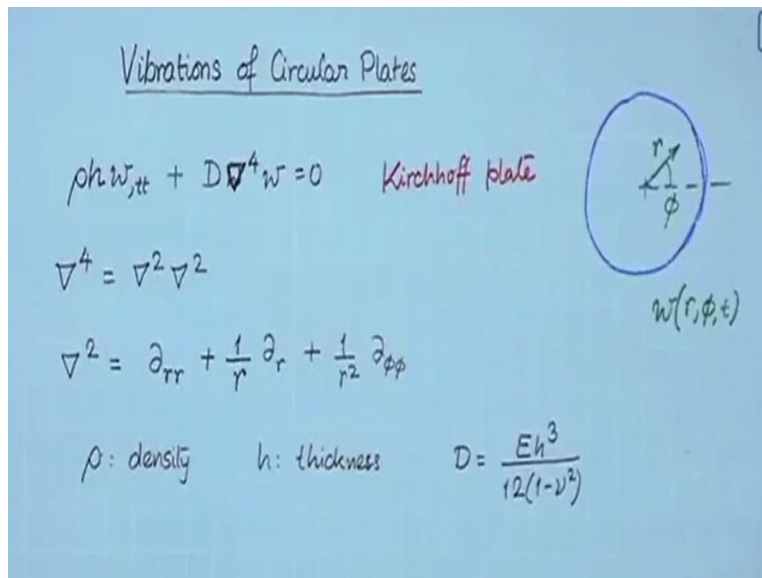 Vibrations of Circular Plates
ρh w,tt + D∇⁴w = 0 Kirchhoff plate
r
φ
∇⁴ = ∇² ∇²
w(r, φ, t)
∇² = ∂rr + 1/r ∂r + 1/r² ∂φφ
ρ: density h: thickness D = Eh³/12(1-ν²)